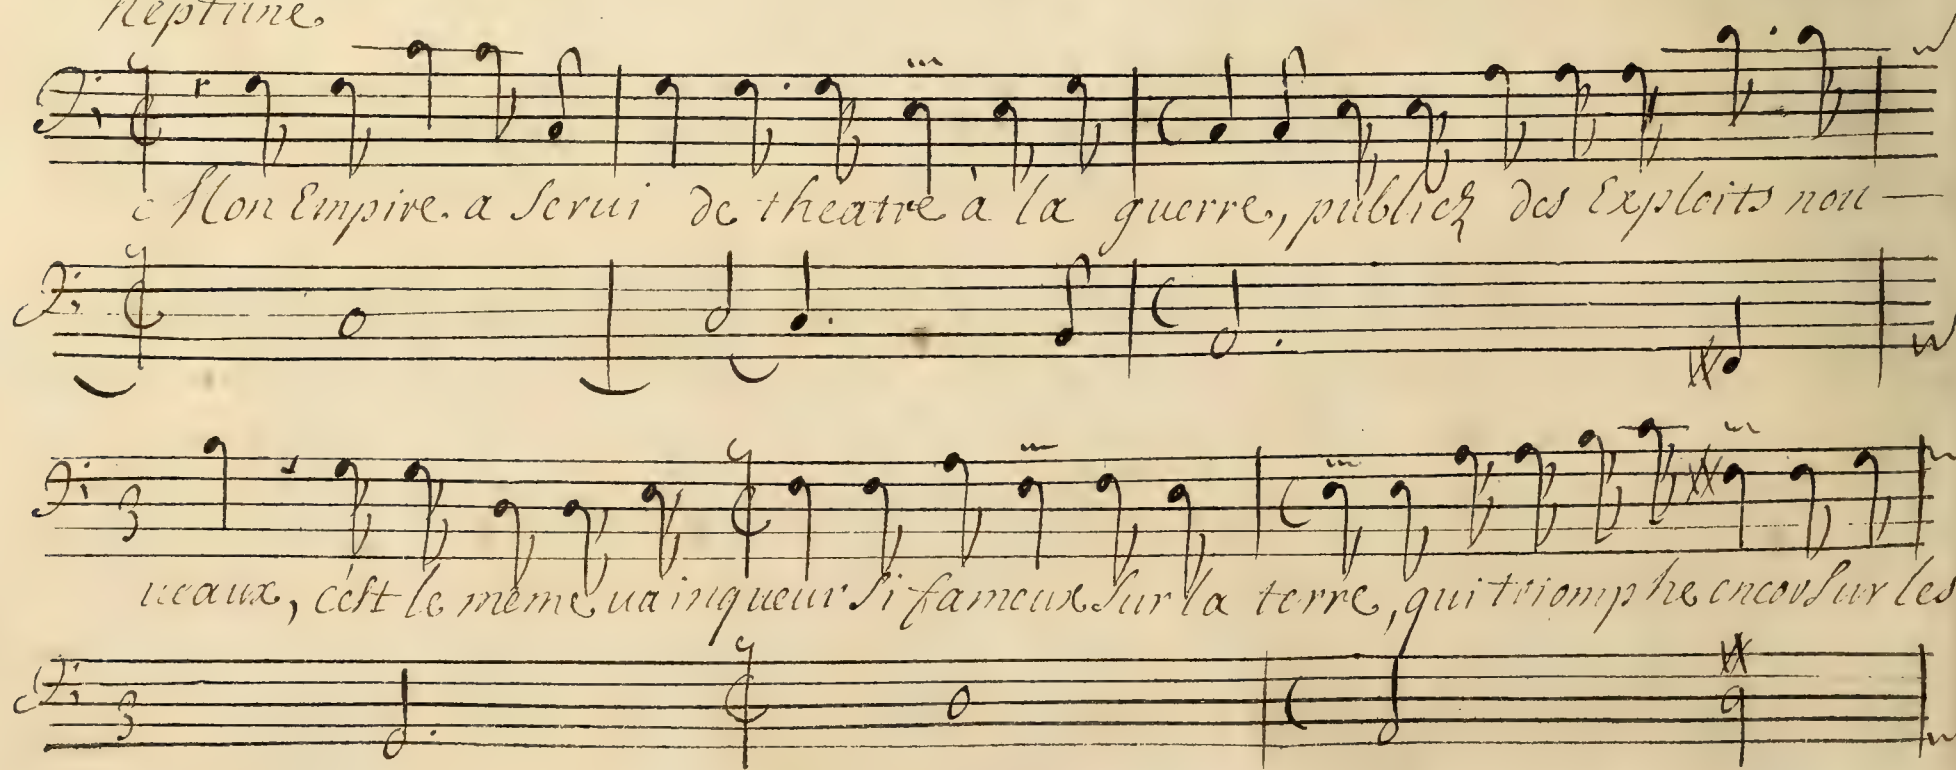 Neptune.
Mon Empire. a Serui de theatre à la guerre, publiez des Exploits nou —
ueaux, c'est le même uainqueur si fameux sur la terre, qui triomphe encor sur les